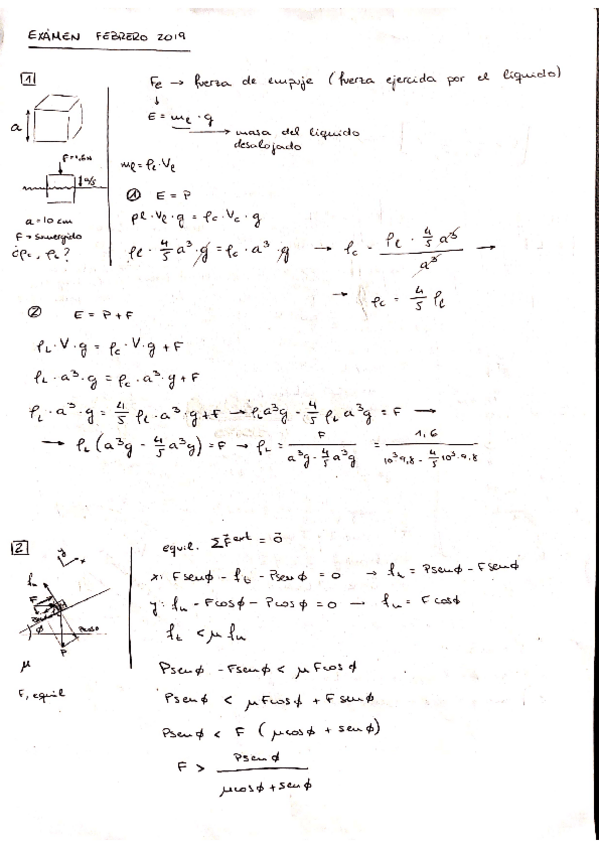 EXÁMEN FEBRERO 2019
1
Fe → fuerza de empuje (fuerza ejercida por el líquido)
↓
E = me · g
→ masa del líquido desalojado
a
F=1,6N
a/5
a = 10 cm
F → sumergido
¿ρc, ρL?
me = ρe · Ve
① E = P
ρl · Vl · g = ρc · Vc · g
ρl · 4/5 a³ · g = ρc · a³ · g → ρc = ρl · 4/5 a³ / a³ →
→ ρc = 4/5 ρl
② E = P + F
ρL · V · g = ρc · V · g + F
ρL · a³ · g = ρc · a³ · g + F
ρL · a³ · g = 4/5 ρL · a³ · g + F → ρL a³g - 4/5 ρL a³g = F →
→ ρL (a³g - 4/5 a³g) = F → ρL = F / a³g - 4/5 a³g = 1,6 / 10³·9,8 - 4/5 10³·9,8
2
y
x
fn
F
ϕ
Pcosϕ
P
μ
F, equil
equil. ΣF⃗ext = 0⃗
x: Fsenϕ - ft - Psenϕ = 0 → fr = Psenϕ - Fsenϕ
y: fn - Fcosϕ - Pcosϕ = 0 → fn = Fcosϕ
ft < μ fn
Psenϕ - Fsenϕ < μFcosϕ
Psenϕ < μFcosϕ + Fsenϕ
Psenϕ < F (μcosϕ + senϕ)
F > Psenϕ / μcosϕ + senϕ